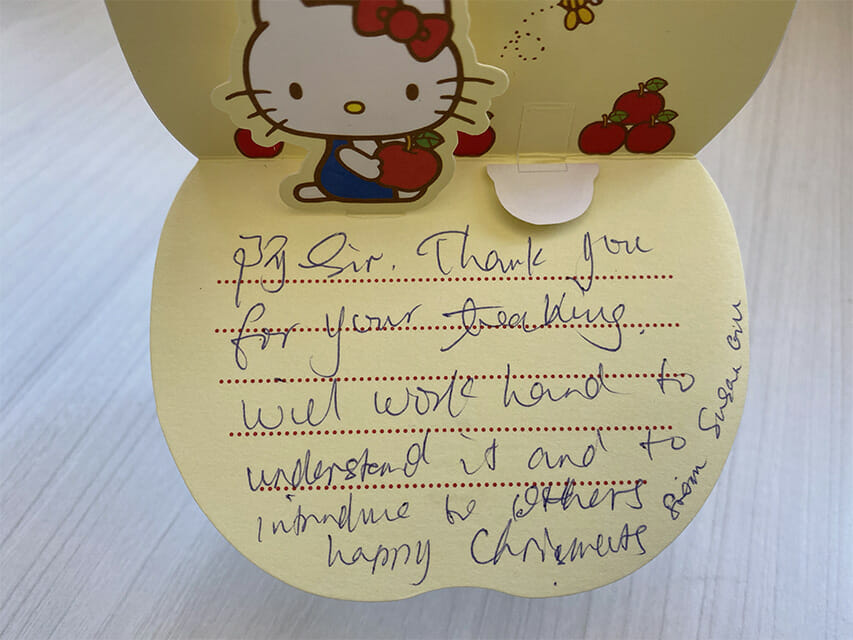 Sir. Thank you
for your teaking.
will work hard to
understand it and to
introduce to others
happy Chrismeets
from Susae